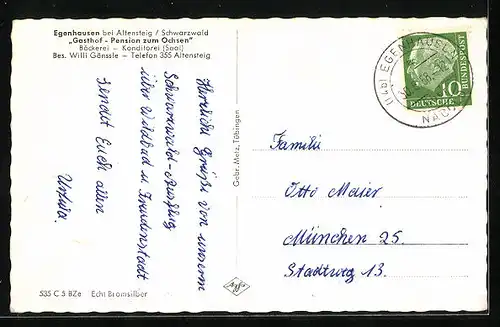 Egenhausen bei Altensteig / Schwarzwald
„Gasthof - Pension zum Ochsen"
Bäckerei - Konditorei (Saal)
Bes. Willi Gänssle - Telefon 355 Altensteig
Herzliche Grüße von unserem
Schwarzwald-Ausflug
über Wildbad u. Freudenstadt
sendet Euch allen
Ursula.
535 C 5 BZe Echt Bromsilber
Gebr. Metz, Tübingen
(14b) EGENHAUSEN
10
BUNDESPOST
DEUTSCHE
Familie
Otto Maier
München 25.
Stadtweg 13.